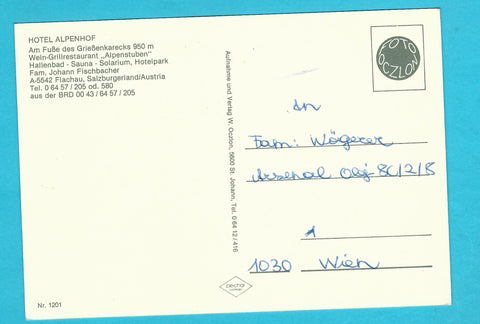 HOTEL ALPENHOF
Am Fuße des Grießenkarecks 950 m
Wein-Grillrestaurant „Alpenstuben"
Hallenbad - Sauna - Solarium, Hotelpark
Fam. Johann Fischbacher
A-5542 Flachau, Salzburgerland/Austria
Tel. 0 64 57 / 205 od. 580
aus der BRD 00 43 / 64 57 / 205
Nr. 1201
Aufnahme und Verlag W. Oczlon, 5600 St. Johann, Tel. 0 64 12 / 416
FOTO
OCZLON
An
Fam: Wögerer
Arsenal Obj 8C/2/8
1
1030 Wien